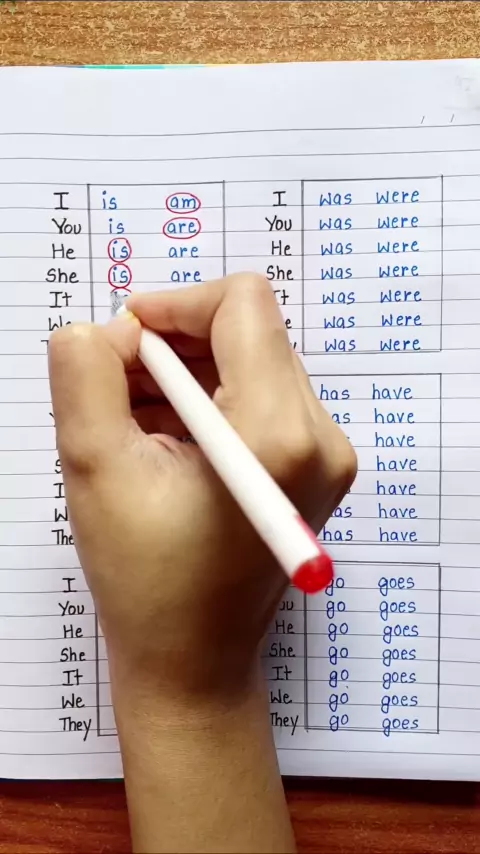 I is am
You is are
He is are
She is are
It
I was were
You was were
He was were
She was were
was were
was were
was were
has have
have
have
have
have
have
has have
I
The
I
You
He
She
It
We
They
go goes
go goes
He go goes
She go goes
It go goes
We go goes
They go goes